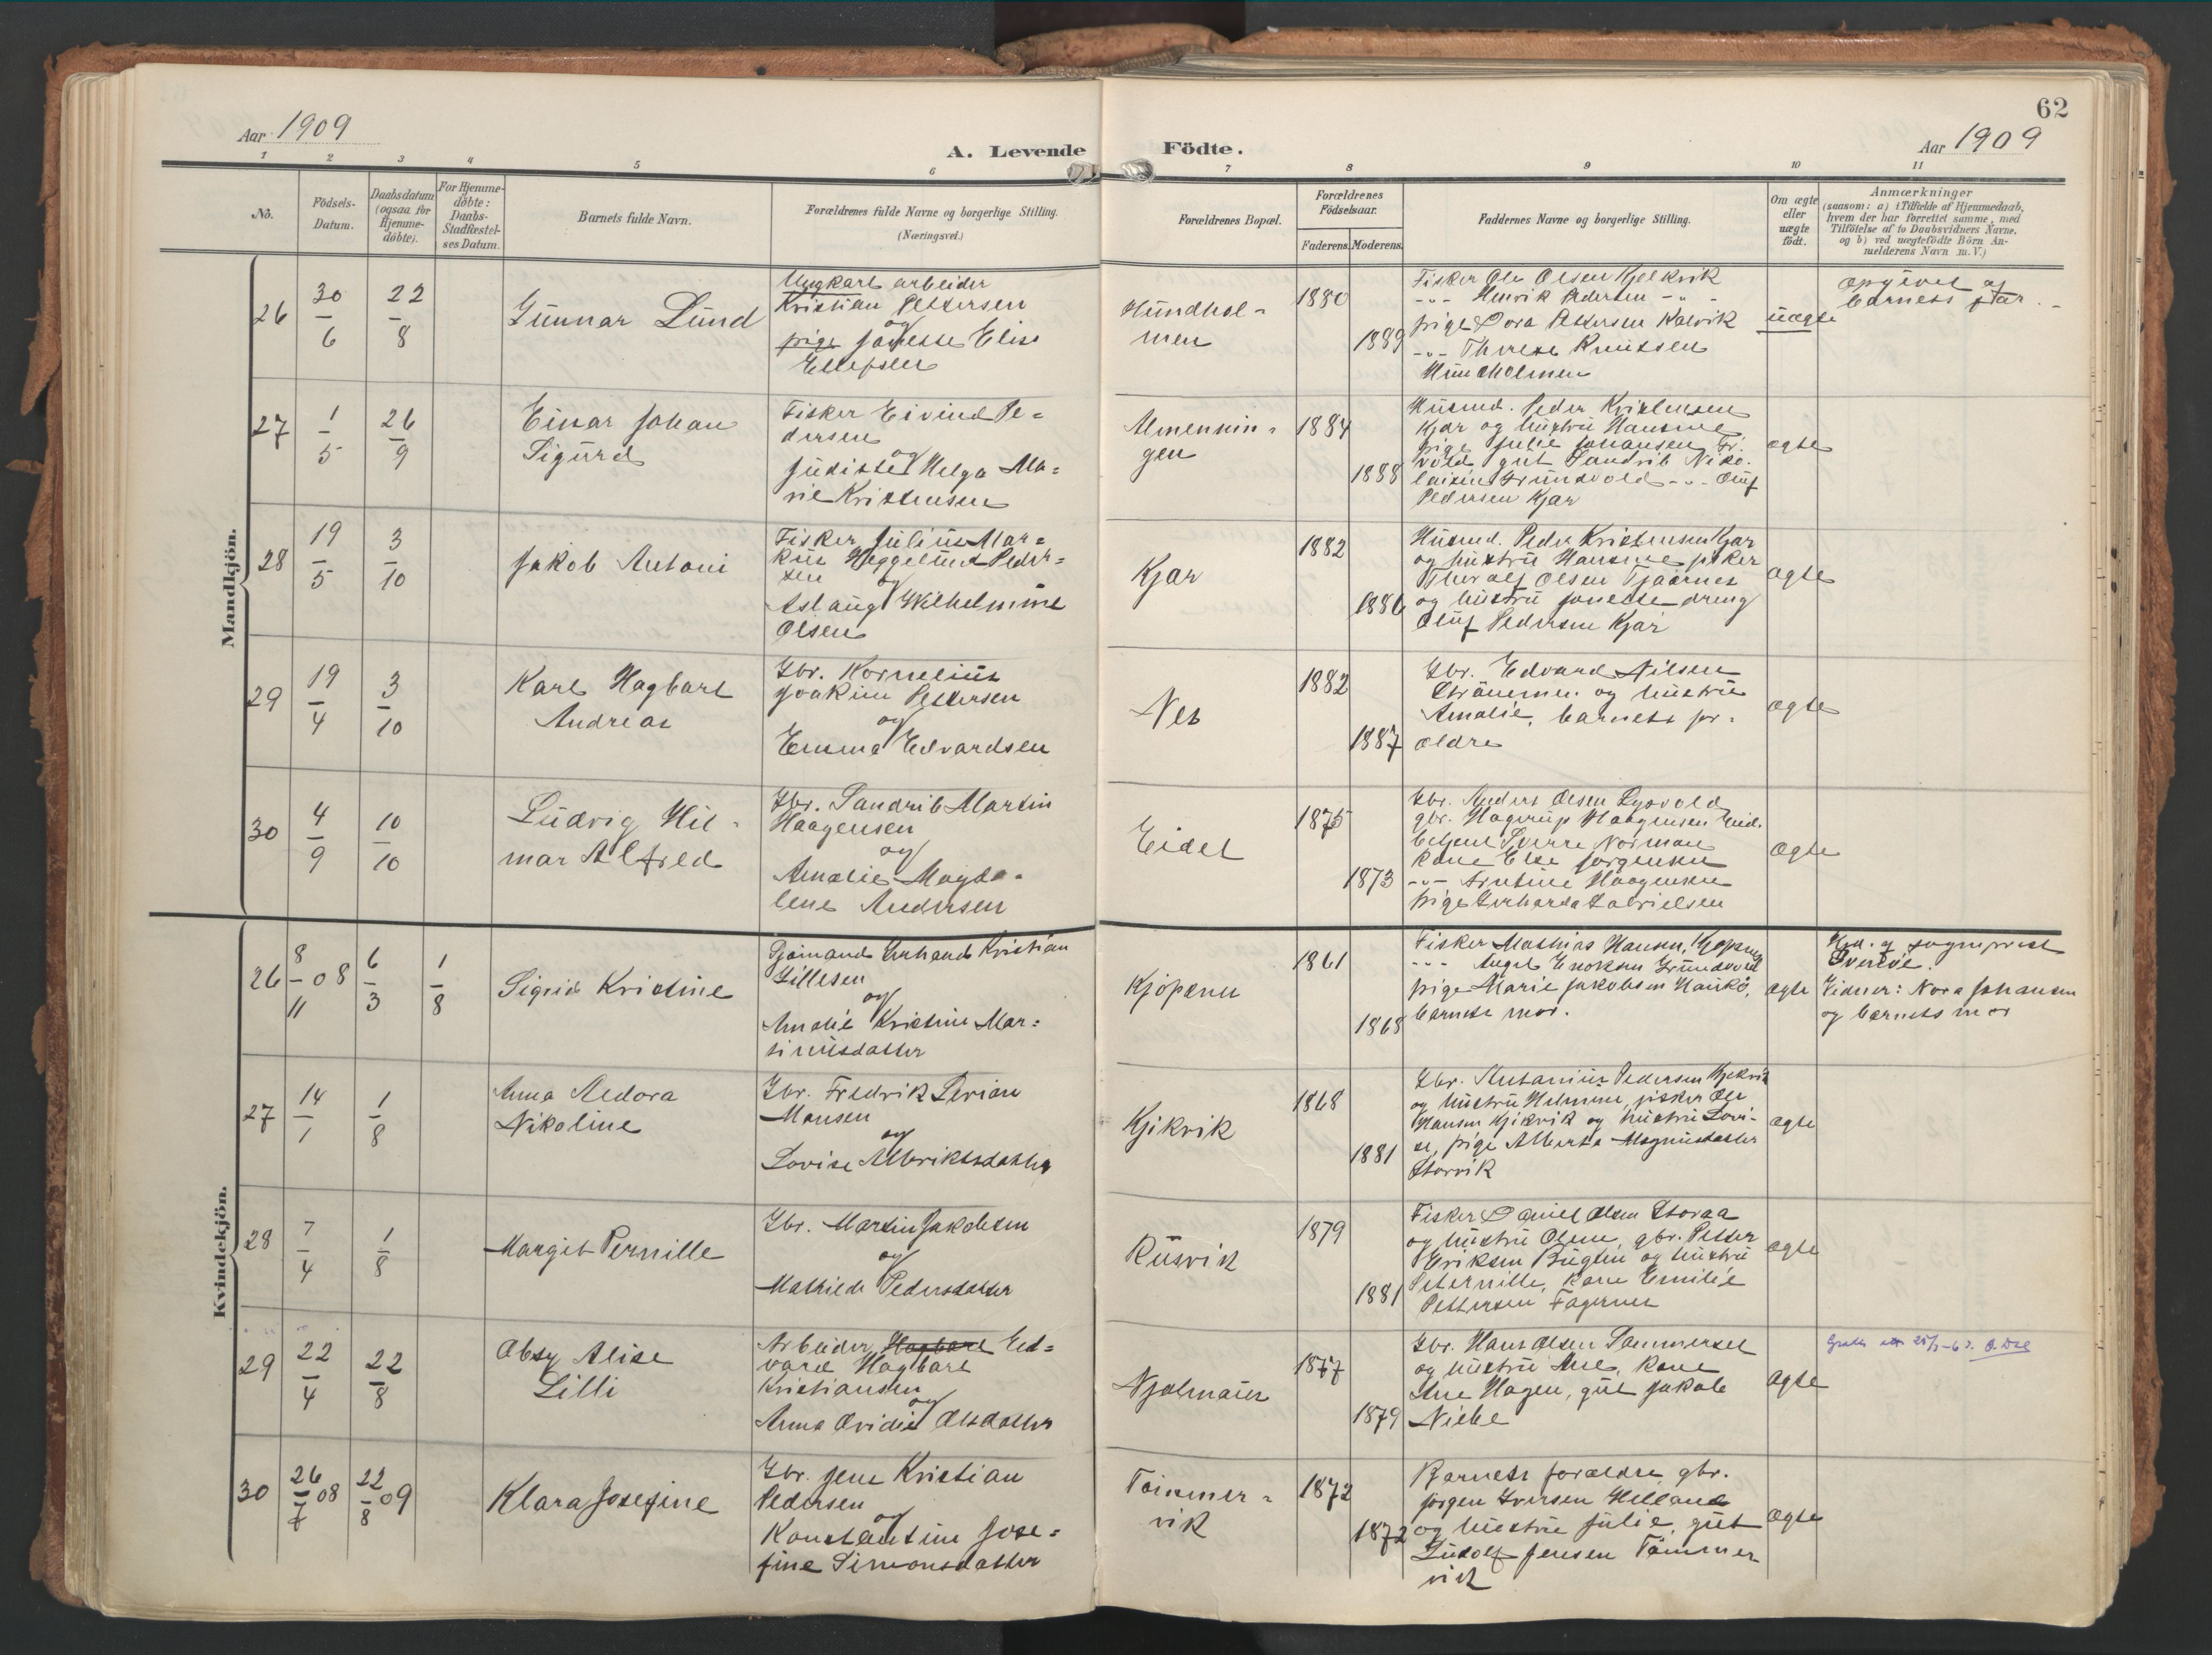 62
Aar 1909
A. Levende Födte.
Aar 1909
1 2 3 4 5 6 7 8 9 10 11
No.
Födsels-
Datum.
Daabsdatum
(ogsaa för
Hjemme-
döbte).
For Hjemme-
döbte:
Daabs-
Stadfæstel-
ses Datum.
Barnets fulde Navn.
Forældrenes fulde Navne og borgerlige Stilling.
(Næringsvei.)
Forældrenes Bopæl.
Forældrenes
Födselsaar.
Faderens. Moderens.
Faddernes Navne og borgerlige Stilling.
Om ægte
eller
uægte
födt.
Anmærkninger
(saasom: a) i Tilfælde af Hjemmedaab,
hvem der har forrettet samme, med
Tilföielse af to Daabsvidners Navne,
og b) ved uægtefödte Börn An-
melderens Navn m. V.)
Mandkjön.
26
30/6
22/8
Gunnar Lund
Ungkarl arbeider
Kristian Pettersen
og
pige Janette Elise
Ellefsen
Hundhol-
men
1880
1889
Fisker Ole Olsen Kjelkvik
-"- Henrik Pedersen -"-
pige Dora Pettersen Kalvik
-"- Therese Knutsen
Hundholmen
uægte
opgivet af
barnets far.
27
1/5
26/9
Einar Johan
Sigurd
Fisker Eivind Pe-
dersen
og
Judithe Helga Ma-
rie Kristensen
Almennin-
gen
1884
1888
Husmd. Peder Kristensen
Kjär og hustru Hansine
pige Julie Johansen
gut Sandrib Niko-
Grundvold -"- Oluf
Pedersen Kjär
ægte
28
19/5
3/10
Jakob Antoni
Fisker Julius Mar-
kus Heggelund Peder-
sen og
Aslaug Wilhelmine
Olsen
Kjär
1882
1886
Husmd. Peder Kristensen Kjär
og hustru Hansine fisker
Thoralf Olsen
og hustru Janette dreng
Oluf Pedersen Kjär
ægte
29
19/4
3/10
Karl Hagbart
Andreas
Gbr. Kornelius
Joakim Pettersen
og
Emma Edvardsen
Nes
1882
1887
Gbr. Edvard Nilsen
og hustru
Amalie, barnets for-
ældre
ægte
30
4/9
10/10
Ludvig Hil-
mar Alfred
Gbr. Sandrib Martin
Haagensen
og
Amalie Magda-
lene Andersen
Eidet
1875
1873
Gbr. Anders Olsen Lysvold
gbr. Hagerup Haagensen Eid.
betjent Sverre Norman
kone Else Jørgensen
-"- Haagensen
pige Gerharda Gabrielsen
ægte
Kvindekjön.
26
8/11 08
6/3
1/8
Sigrid Kristine
Gaardmand Gerhard Kristian
Gillesen
og
Amalie Kristine Mar-
tinusdatter
Kjöpsnes
1861
1868
Fisker Mathias Hansen, Kjöpsnes
-"- Angel Enoksen Grundvold
pige Marie Jakobsen Haukö,
barnets mor.
ægte
sogneprest
Sverdve.
Vidner: Nora Johansen
og barnets mor
27
14/1
1/8
Anna Aedora
Nikoline
Gbr. Fredrik Severian
Monsen
og
Lovise Albriktsdatter
Kjikvik
1868
1881
Gbr. Antonius Pedersen Kjikvik
og hustru Helmine, fisker Ole
Hansen Kjikvik og hustru Lovi-
se, pige Alberta Magnusdatter
Storvik
ægte
28
7/4
1/8
Margit Pernille
Gbr. Martin Jakobsen
og
Mathilde Pedersdatter
Rusvik
1879
1881
Fisker Daniel Olsen Storaa
og hustru Oline, gbr. Petter
Eriksen Buglein og hustru
Peternille, kone Emilie
Pettersen Fagernes
ægte
29
22/4
22/8
Obsy Alise
Lilli
Arbeider Hagbart Ed-
vard Hagbart
Kristiansen
og
Anna Ovidia Olsdatter
1877
1879
Gbr. Hans Olsen Sommerset
og hustru Ane, kone
Ane Hagen, gut Jakob
ægte
30
26/7 08
22/8 09
Klara Josefine
Gbr. Jens Kristian
Pedersen
og
Konstantine Jose-
fine Simonsdatter
Tömmer-
vik
1872
1872
Barnets forældre, gbr.
Jørgen Iversen Helland
og hustru Julie, gut
Ludolf Jensen Tömmer
vik
ægte